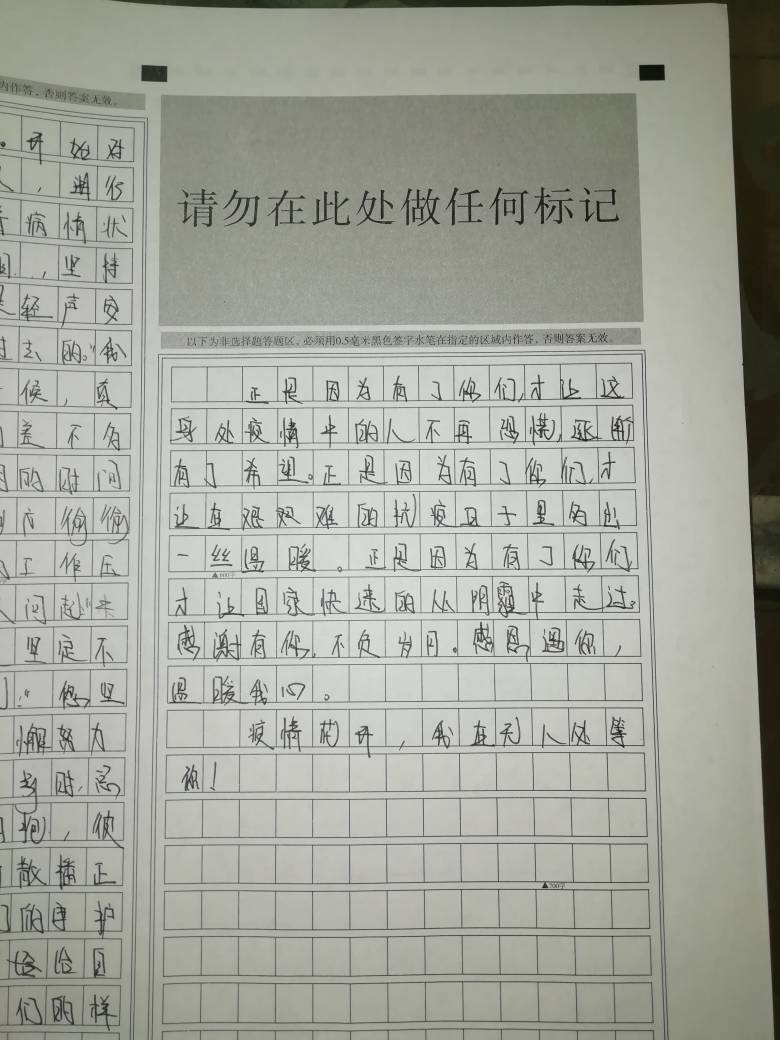 内作答，否则答案无效。
。开始对
，
病情状
，坚持
轻声安
过去的。”我
候，真
差不多
的时间
偷偷
工作压
问起“
坚定不
。”您坚
懈努力
时，总
，
散播正
的守护
给
们的样
请勿在此处做任何标记
以下为非选择题答题区，必须用0.5毫米黑色签字水笔在指定的区域内作答，否则答案无效。
正是因为有了你们,才让这
身处疫情中的人不再恐慌,逐渐
有了希望。正是因为有了你们,才
让在艰难的抗疫日子里多出
一丝温暖。正是因为有了你们,
▲600字
才让国家快速的从阴霾中走过。
感谢有你,不负岁月。感恩遇你，
温暖我心。
疫情花开，我在无人处等
你！
▲700字